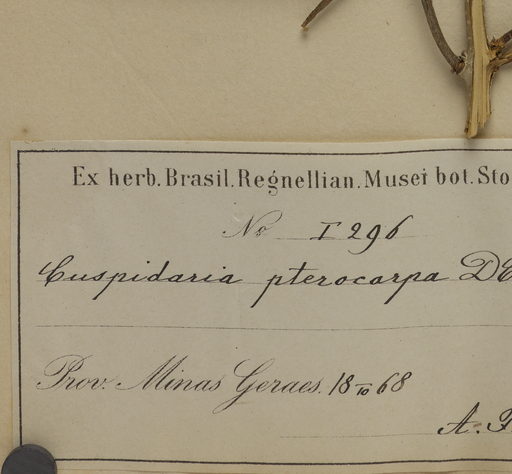 Ex herb. Brasil. Regnellian. Musei bot. Sto
No I 296
Cuspidaria pterocarpa DC
Prov. Minas Geraes. 18 10 68
A.